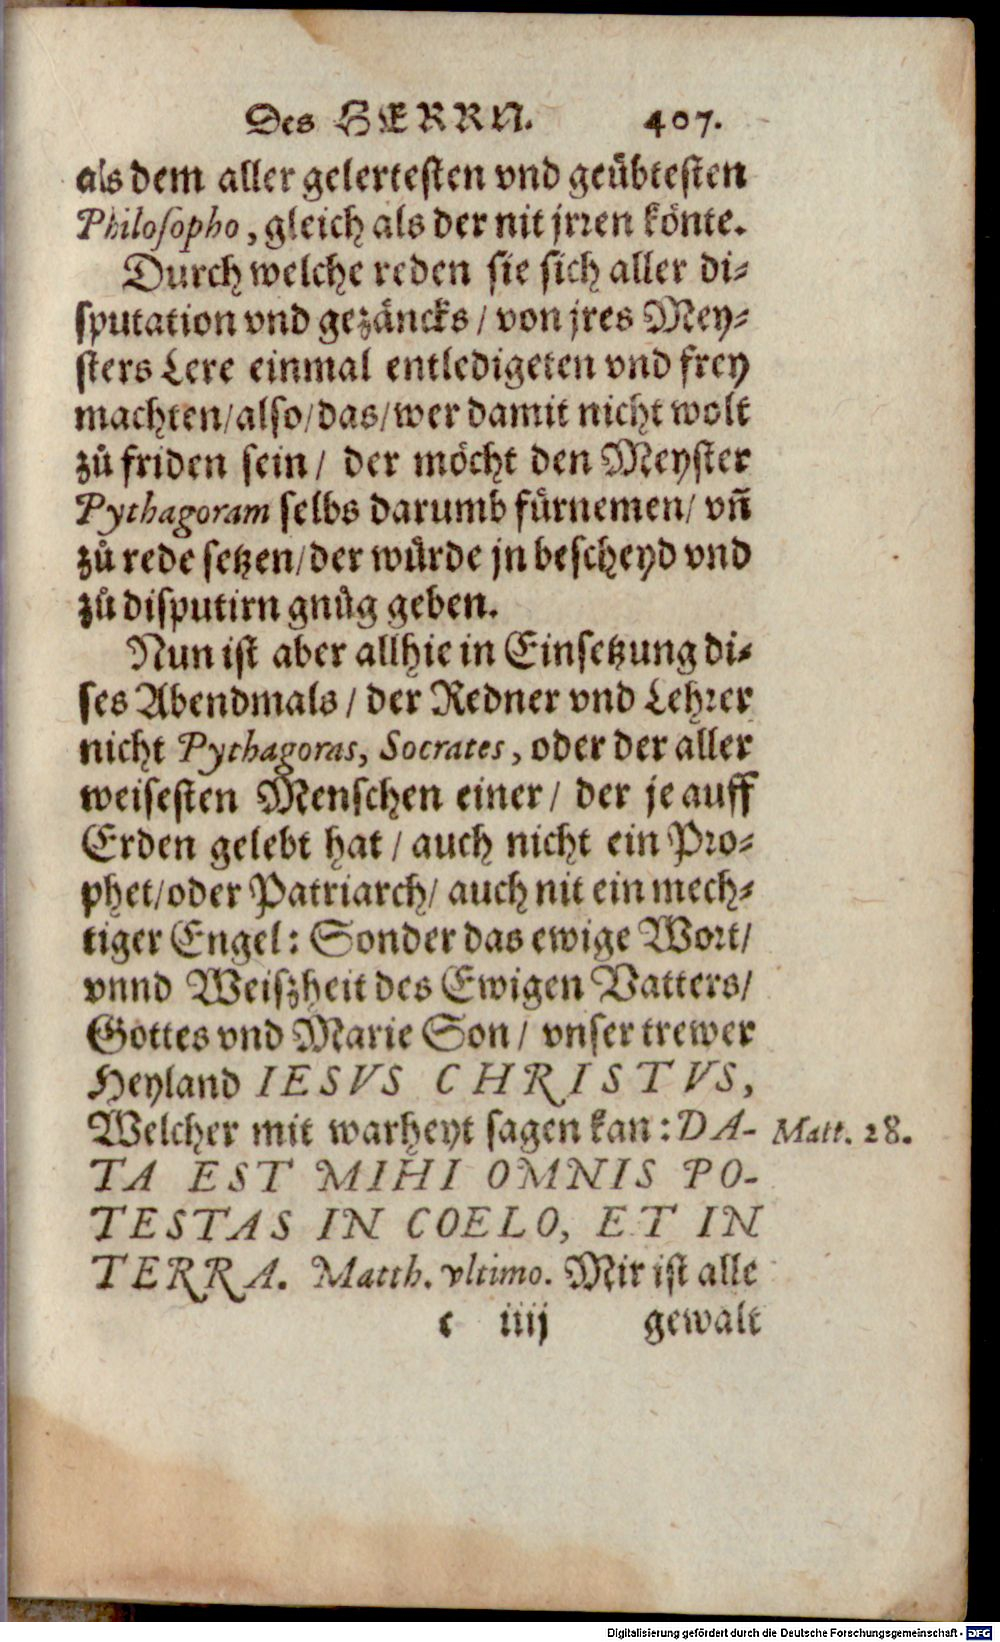 Des HERRN. 407.
als dem aller gelertesten vnd geübtesten
Philosopho, gleich als der nit jrren könte.
Durch welche reden sie sich aller di-
sputation vnd gezäncks / von jres Mey-
sters Lere einmal entledigeten vnd frey
machten / also / das / wer damit nicht wolt
zů friden sein / der möcht den Meyster
Pythagoram selbs darumb fürnemen / vñ
zů rede setzen / der würde jn bescheyd vnd
zů disputirn gnůg geben.
Nun ist aber allhie in Einsetzung di-
ses Abendmals / der Redner vnd Lehrer
nicht Pythagoras, Socrates, oder der aller
weisesten Menschen einer / der je auff
Erden gelebt hat / auch nicht ein Pro-
phet / oder Patriarch / auch nit ein mech-
tiger Engel: Sonder das ewige Wort /
vnnd Weiszheit des Ewigen Vatters /
Gottes vnd Marie Son / vnser trewer
Heyland IESVS CHRISTVS,
Welcher mit warheyt sagen kan: DA- Matt. 28.
TA EST MIHI OMNIS PO-
TESTAS IN COELO, ET IN
TERRA. Matth. vltimo. Mir ist alle
c iiij gewalt
Digitalisierung gefördert durch die Deutsche Forschungsgemeinschaft - DFG